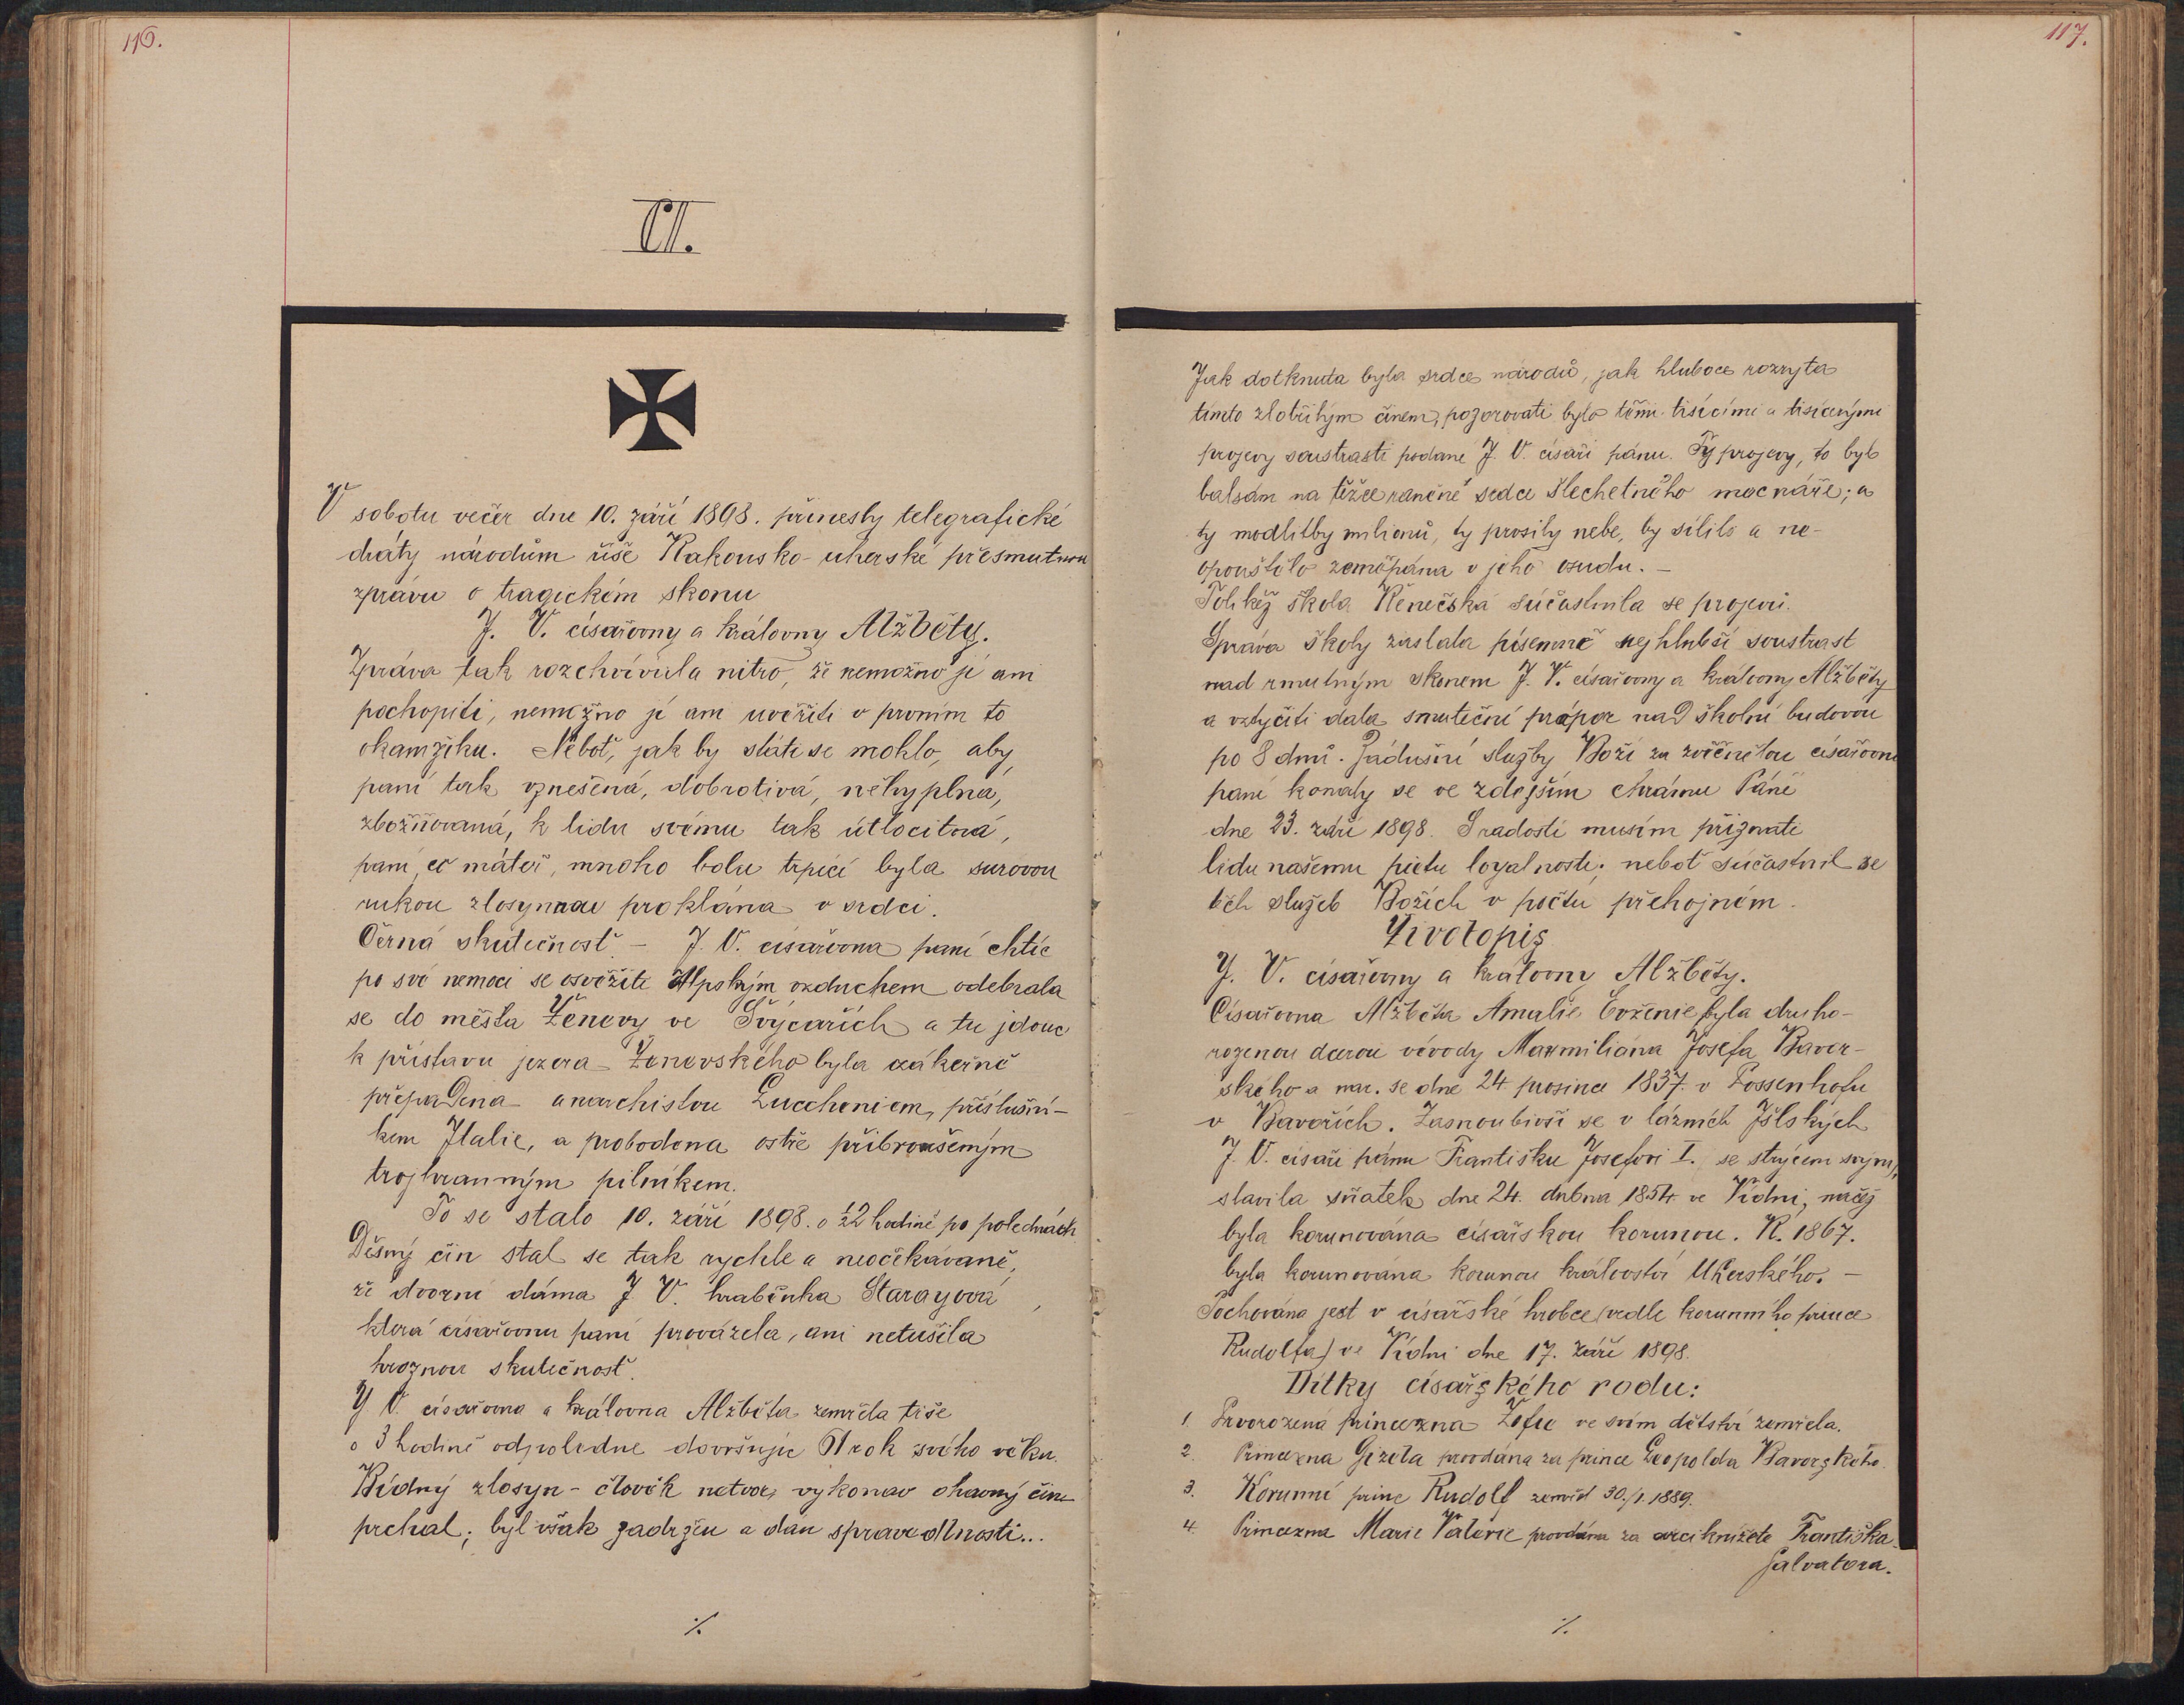 116.
CI.
V sobotu večer dne 10. září 1898. přinesly telegrafické
dráty národům říše Rakousko-uherské přesmutnou
zprávu o tragickém skonu
J. V. císařovny a královny Alžběty.
Zpráva tak rozchvívula nitro, že nemožno jí ani
pochopiti, nemožno jí ani uvěřiti v prvním to
okamžiku. Neboť, jak by státi se mohlo, aby
paní tak vznešená, dobrotivá, něhyplná,
zbožňovaná, k lidu svému tak útlocitná,
paní, co máteř, mnoho bolu trpící byla surovou
rukou zlosynnou proklána v srdci.
Černá skutečnosť. - J. V. císařovna paní chtíc
po své nemoci se osvěžiti Alpským vzduchem odebrala
se do města Ženevy ve Švýcařích a tu jdouc
k přístavu jezera Ženevského byla zákeřně
přepadena anarchistou Luccheniem, příslušní-
kem Italie, a probodena ostře přibroušeným
trojhranným pilníkem.
To se stalo 10. září 1898. o ½2 hodině po polednách
Děsný čin stal se tak rychle a neočekávaně,
že dvorní dáma J. V. hraběnka Starayová,
která císařovnu paní provázela, ani netušila
hroznou skutečnosť.
J. V. císařovna a královna Alžběta zemřela tiše
o 3 hodině odpoledne dovršujíc 61 rok svého věku.
Bídný zlosyn - člověk netvor, vykonav ohavný čin
prchal; byl však zadržen a dán spravedlnosti...
⁒
117.
Jak dotknuta byla srdce národů, jak hluboce rozryta
tímto zlotřilým činem, pozorovati bylo těmi tisícími a tisícerými
projevy soustrasti podané J. V. císaři pánu. Ty projevy, to byl
balsám na těžce raněné srdce šlechetného mocnáře; a
ty modlitby milionů, ty prosily nebe, by sílilo a ne-
opouštělo zeměpána v jeho osudu. -
Tolikéž škola Řenečská súčastnila se projevů.
Správa školy zaslala písemně nejhlubší soustrast
nad rmutným skonem J. V. císařovny a královny Alžběty
a vztyčiti dala smuteční prápor nad školní budovou
po 8 dnů. Zádušní služby Boží za zvěčnělou císařovnu
paní konaly se ve zdejším chrámu Páně
dne 23. září 1898. S radostí musím přiznati
lidu našemu pietu loyalnosti; neboť súčastnil se
těch služeb Božích v počtu přehojném.
Životopis
J. V. císařovny a královny Alžběty.
Císařovna Alžběta Amalie Evženie byla druho-
rozenou dcerou vévody Maxmiliána Josefa Bavor-
ského a nar. se dne 24 prosince 1837. v Possenhofu
v Bavořích. Zasnoubivši se v lázních Išlských
J. V. císaři pánu Františku Josefovi I. se strýcem svým,
slavila sňatek dne 24. dubna 1854. ve Vídni, načež
byla korunována císařskou korunou. R. 1867.
byla korunována korunou království Uherského. -
Pochována jest v císařské hrobce (vedle korunního prince
Rudolfa) ve Vídni dne 17. září 1898.
Dítky císařského rodu:
1. Prvorozená princezna Žofie ve svém dětství zemřela.
2. Princezna Gizela provdána za prince Leopolda Bavorského.
3. Korunní princ Rudolf zemřel 30./1. 1889.
4. Princezna Marie Valerie provdána za arciknížete Františka
Salvatora.
⁒